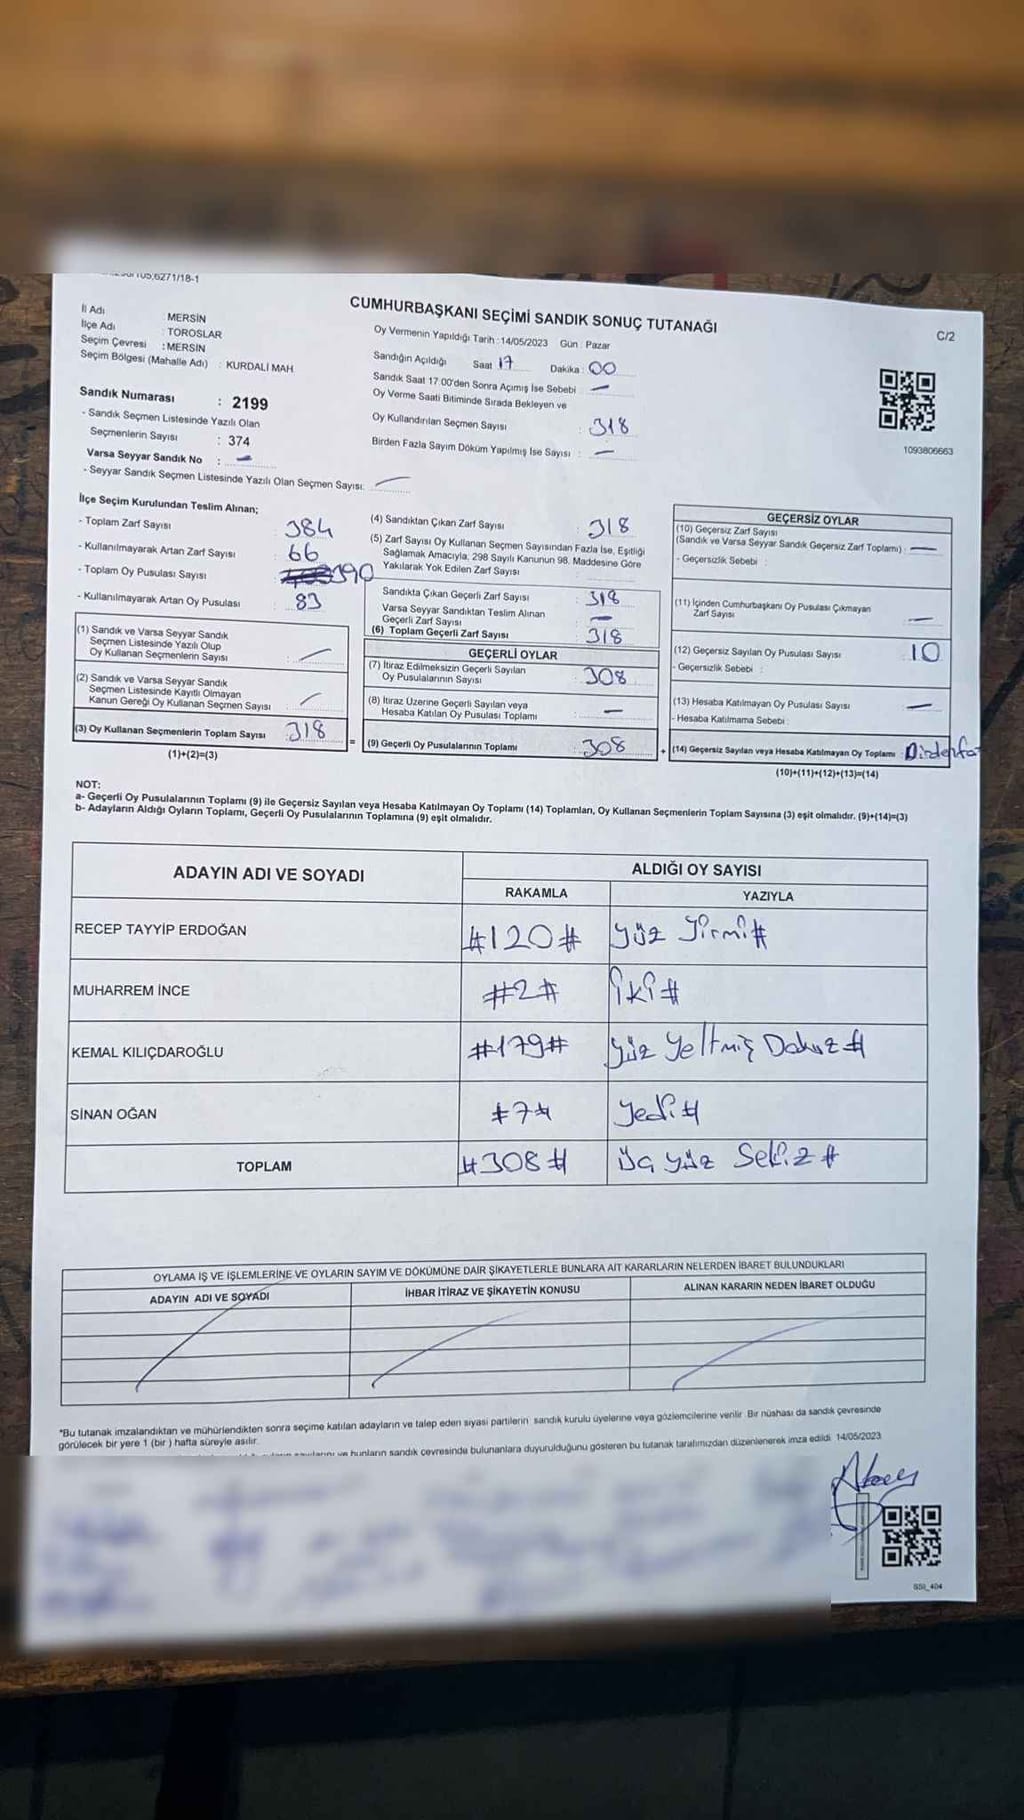 6271/18-1
CUMHURBAŞKANI SEÇİMİ SANDIK SONUÇ TUTANAĞI
C/2
İl Adı : MERSİN
İlçe Adı : TOROSLAR
Seçim Çevresi : MERSİN
Seçim Bölgesi (Mahalle Adı) : KURDALİ MAH.
Sandık Numarası : 2199
- Sandık Seçmen Listesinde Yazılı Olan
Seçmenlerin Sayısı : 374
Varsa Seyyar Sandık No : —
- Seyyar Sandık Seçmen Listesinde Yazılı Olan Seçmen Sayısı: —
Oy Vermenin Yapıldığı Tarih : 14/05/2023 Gün : Pazar
Sandığın Açıldığı Saat 17 Dakika : 00
Sandık Saat 17:00'den Sonra Açımış İse Sebebi : —
Oy Verme Saati Bitiminde Sırada Bekleyen ve
Oy Kullandırılan Seçmen Sayısı : 318
Birden Fazla Sayım Döküm Yapılmış İse Sayısı : —
1093806663
İlçe Seçim Kurulundan Teslim Alınan;
- Toplam Zarf Sayısı : 384
- Kullanılmayarak Artan Zarf Sayısı : 66
- Toplam Oy Pusulası Sayısı : 390
- Kullanılmayarak Artan Oy Pusulası : 83
(1) Sandık ve Varsa Seyyar Sandık
Seçmen Listesinde Yazılı Olup
Oy Kullanan Seçmenlerin Sayısı : —
(2) Sandık ve Varsa Seyyar Sandık
Seçmen Listesinde Kayıtlı Olmayan
Kanun Gereği Oy Kullanan Seçmen Sayısı : —
(3) Oy Kullanan Seçmenlerin Toplam Sayısı : 318
(1)+(2)=(3)
(4) Sandıktan Çıkan Zarf Sayısı : 318
(5) Zarf Sayısı Oy Kullanan Seçmen Sayısından Fazla İse, Eşitliği
Sağlamak Amacıyla, 298 Sayılı Kanunun 98. Maddesine Göre
Yakılarak Yok Edilen Zarf Sayısı :
Sandıkta Çıkan Geçerli Zarf Sayısı : 318
Varsa Seyyar Sandıktan Teslim Alınan
Geçerli Zarf Sayısı : —
(6) Toplam Geçerli Zarf Sayısı : 318
GEÇERLİ OYLAR
(7) İtiraz Edilmeksizin Geçerli Sayılan
Oy Pusulalarının Sayısı : 308
(8) İtiraz Üzerine Geçerli Sayılan veya
Hesaba Katılan Oy Pusulası Toplamı : —
= (9) Geçerli Oy Pusulalarının Toplamı : 308
GEÇERSİZ OYLAR
(10) Geçersiz Zarf Sayısı
(Sandık ve Varsa Seyyar Sandık Geçersiz Zarf Toplamı) : —
- Geçersizlik Sebebi :
(11) İçinden Cumhurbaşkanı Oy Pusulası Çıkmayan
Zarf Sayısı : —
(12) Geçersiz Sayılan Oy Pusulası Sayısı : 10
- Geçersizlik Sebebi :
(13) Hesaba Katılmayan Oy Pusulası Sayısı : —
- Hesaba Katılmama Sebebi :
+ (14) Geçersiz Sayılan veya Hesaba Katılmayan Oy Toplamı :
(10)+(11)+(12)+(13)=(14)
NOT:
a- Geçerli Oy Pusulalarının Toplamı (9) ile Geçersiz Sayılan veya Hesaba Katılmayan Oy Toplamı (14) Toplamları, Oy Kullanan Seçmenlerin Toplam Sayısına (3) eşit olmalıdır. (9)+(14)=(3)
b- Adayların Aldığı Oyların Toplamı, Geçerli Oy Pusulalarının Toplamına (9) eşit olmalıdır.
ADAYIN ADI VE SOYADI ALDIĞI OY SAYISI
RAKAMLA YAZIYLA
RECEP TAYYİP ERDOĞAN #120# yüz yirmi#
MUHARREM İNCE #2# iki#
KEMAL KILIÇDAROĞLU #179# yüz yeltmiş Dokuz#
SİNAN OĞAN #7# yedi#
TOPLAM #308# üç yüz Sekiz#
OYLAMA İŞ VE İŞLEMLERİNE VE OYLARIN SAYIM VE DÖKÜMÜNE DAİR ŞİKAYETLERLE BUNLARA AİT KARARLARIN NELERDEN İBARET BULUNDUKLARI
ADAYIN ADI VE SOYADI İHBAR İTİRAZ VE ŞİKAYETİN KONUSU ALINAN KARARIN NEDEN İBARET OLDUĞU
*Bu tutanak imzalandıktan ve mühürlendikten sonra seçime katılan adayların ve talep eden siyasi partilerin sandık kurulu üyelerine veya gözlemcilerine verilir. Bir nüshası da sandık çevresinde
görülecek bir yere 1 (bir) hafta süreyle asılır.
ve bunların sandık çevresinde bulunanlara duyurulduğunu gösteren bu tutanak tarafımızdan düzenlenerek imza edildi. 14/05/2023
SSI_404